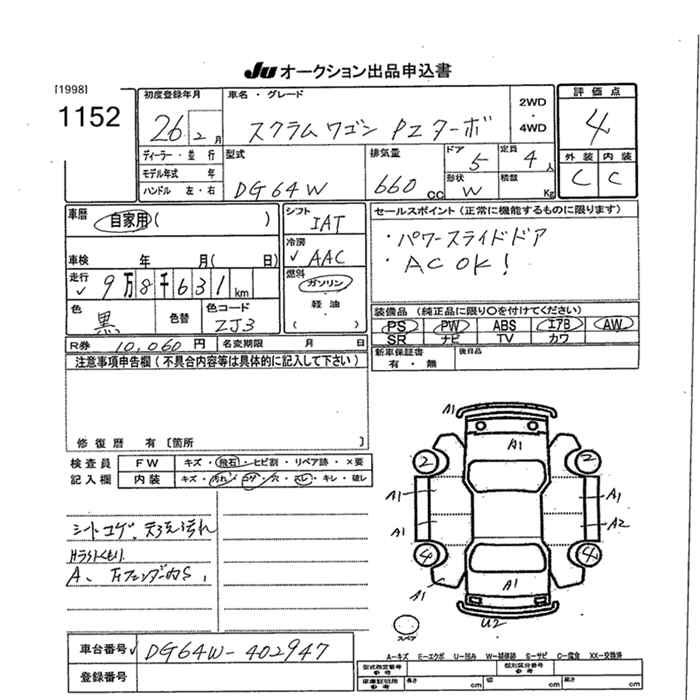 JU オークション出品申込書
[1998]
1152
初度登録年月
26 2月
車名・グレード
スクラムワゴン PZターボ
2WD
・
4WD
評価点
4
外装 内装
C C
ディーラー・並行
モデル年式 年
ハンドル 左・右
型式
DG64W
排気量
660 cc
ドア
5
定員
4 人
形状
W
積載
Kg
車歴
自家用 ( )
車検 年 月( 日)
走行
9万8千631 km
色
黒
色替
色コード
ZJ3
シフト
IAT
冷房
AAC
燃料
ガソリン
・
軽油
・
( )
セールスポイント (正常に機能するものに限ります)
・パワースライドドア
・AC OK!
装備品 (純正品に限り〇を付けてください)
PS PW ABS エアB AW
SR ナビ TV カワ
新車保証書
有・無
後日品
R券 10,060 円 名変期限 月 日
注意事項申告欄 (不具合内容等は具体的に記入して下さい)
修復歴 有 [箇所 ]
検査員
記入欄
FW キズ・飛石・ヒビ割・リペア跡・×要
内装 キズ・汚れ・コゲ・穴・スレ・キレ・破レ
シートコゲ、天張汚れ
A1
A1
2 2
A1 A1
A1 A2
4 4
A1
A1
U2
スペア
車台番号 DG64W-402947
登録番号
A-キズ E-エクボ U-凹み W-補修跡 S-サビ C-腐食 XX-交換済
型式指定番号
参考
類別区分番号
参考
車庫証明用
参考
長さ cm 幅 cm 高さ cm